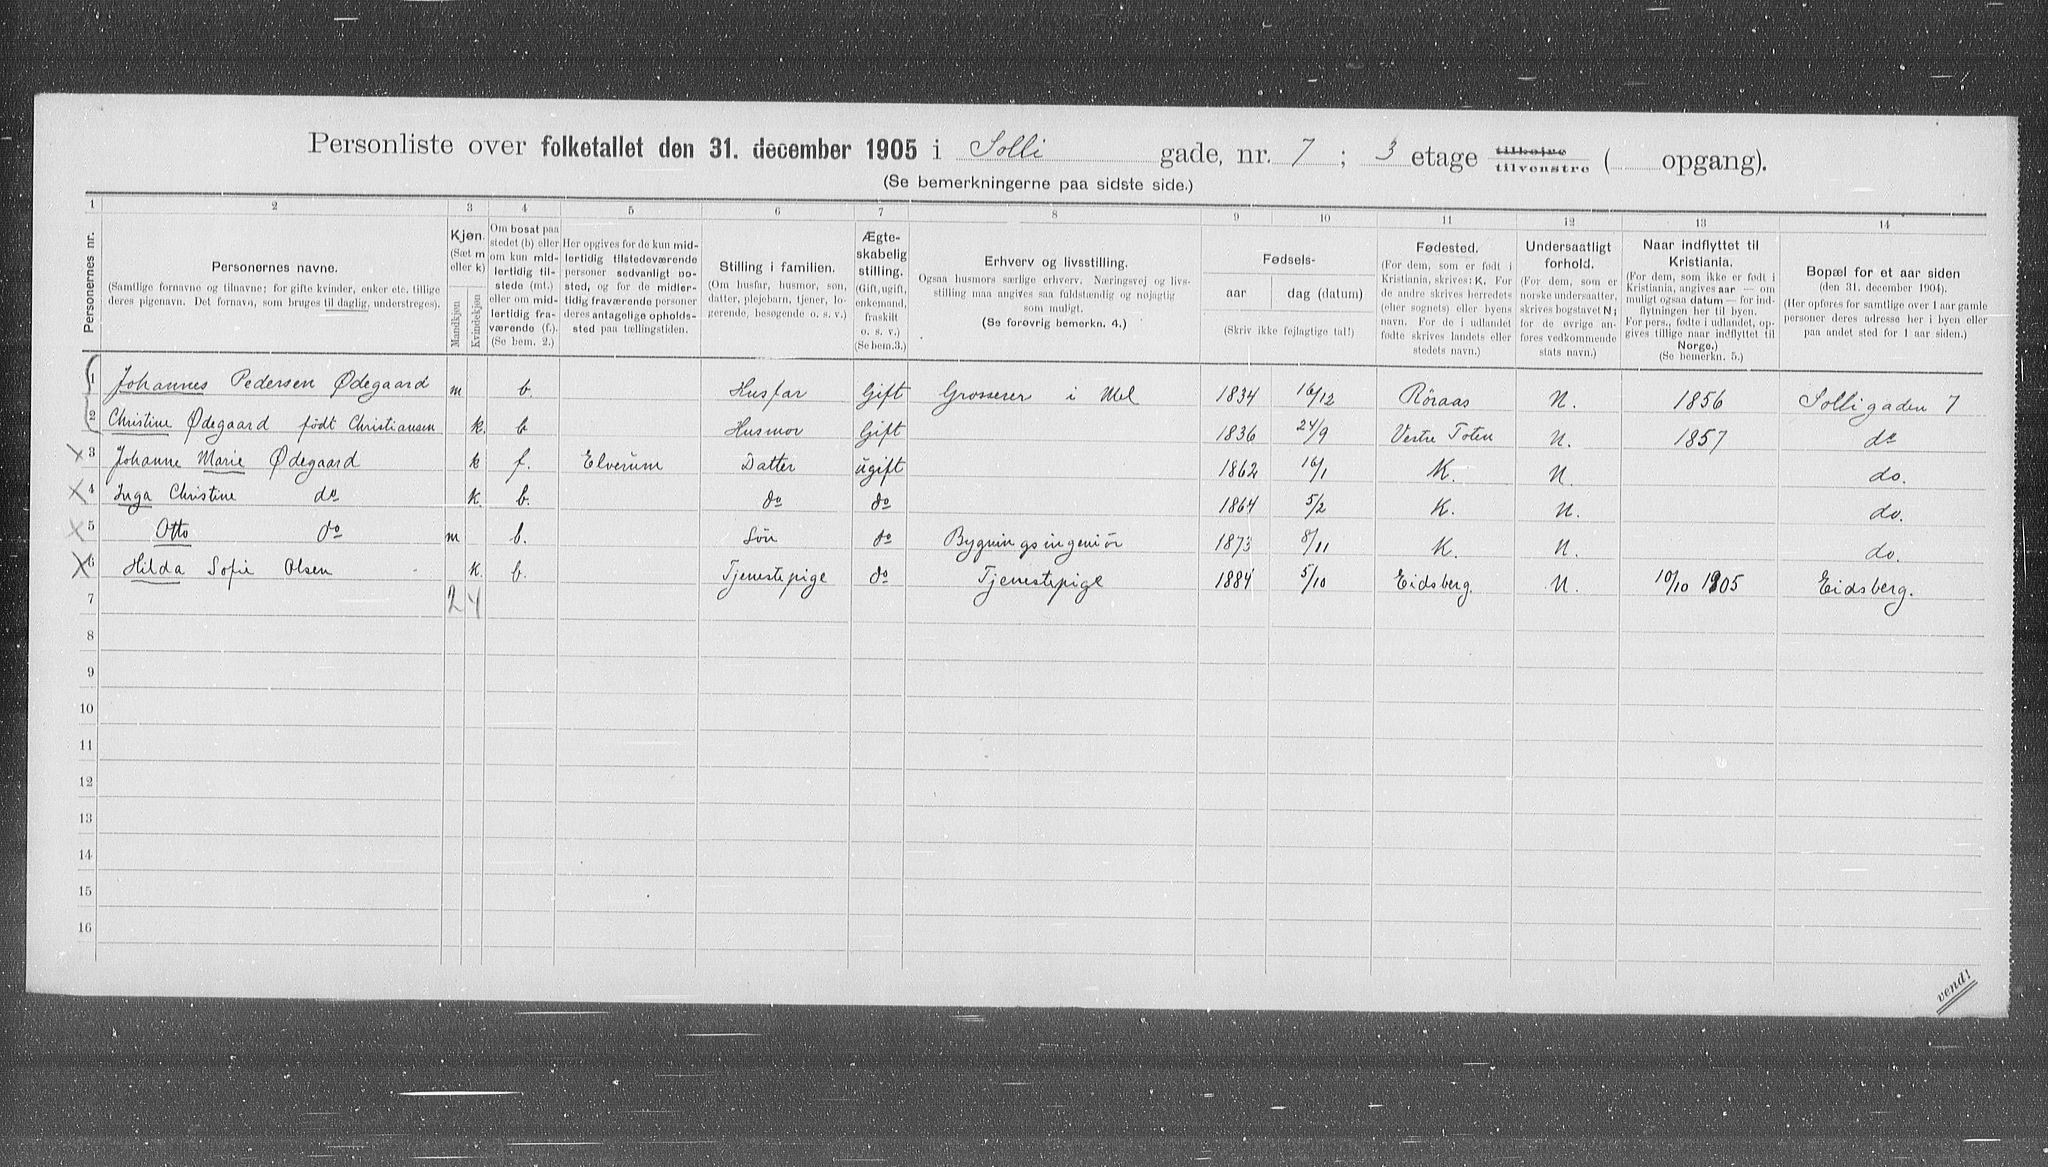 Personliste over folketallet den 31. december 1905 i Solli gade, nr. 7 ; 3 etage tilhøjre tilvenstre ( opgang).
(Se bemerkningerne paa sidste side.)
1 2 3 4 5 6 7 8 9 10 11 12 13 14
Personernes nr.
Personernes navne.
(Samtlige fornavne og tilnavne; for gifte kvinder, enker etc. tillige
deres pigenavn. Det fornavn, som bruges til daglig, understreges).
Kjøn.
(Sæt m
eller k)
Mandkjøn
Kvindekjøn
Om bosat paa
stedet (b) eller
om kun mid-
lertidig til-
stede (mt.)
eller om mid-
lertidig fra-
værende (f.).
(Se bem. 2.)
Her opgives for de kun mid-
lertidig tilstedeværende
personer sedvanligt bo-
sted, og for de midler-
tidig fraværende personer
deres antagelige opholds-
sted paa tællingstiden.
Stilling i familien.
(Om husfar, husmor, søn,
datter, plejebarn, tjener, lo-
gerende, besøgende o. s. v.)
Ægte-
skabelig
stilling.
(Gift, ugift,
enkemand,
fraskilt
o. s. v.)
(Se bem. 3.)
Erhverv og livsstilling.
Ogsaa husmors særlige erhverv. Næringsvej og livs-
stilling maa angives saa fuldstændig og nøjagtig
som muligt.
(Se forøvrig bemerkn. 4.)
Fødsels-
aar
dag (datum)
(Skriv ikke fejlagtige tal!)
Fødested.
(For dem, som er født i
Kristiania, skrives: K. For
de andre skrives herredets
(eller sognets) eller byens
navn. For de i udlandet
fødte skrives landets eller
stedets navn.)
Undersaatligt
forhold.
(For dem, som er
norske undersaatter,
skrives bogstavet N;
for de øvrige an-
føres vedkommende
stats navn.)
Naar indflyttet til
Kristiania.
(For dem, som ikke er født i
Kristiania, angives aar — om
muligt ogsaa datum — for ind-
flytningen her til byen.
For pers., fødte i udlandet, op-
gives tillige naar indflyttet til
Norge.)
(Se bemerkn. 5.)
Bopæl for et aar siden
(den 31. december 1904).
(Her opføres for samtlige over 1 aar gamle
personer deres adresse her i byen eller
paa andet sted for 1 aar siden.)
1 Johannes Pedersen Ødegaard m b Husfar Gift Grosserer i Mel 1834 16/12 Röraas N. 1856 Solligaden 7
2 Christine Ødegaard födt Christiansen k. b Husmor Gift 1836 24/9 Vestre Toten N. 1857 do
3 Johanne Marie Ødegaard k f. Elverum Datter ugift 1862 16/1 K. N. do.
4 Inga Christine do k. b. do do 1864 5/2 K. N. do.
5 Otto do m b. Søn do Bygningsingeniør 1873 8/11 K. N. do.
6 Hilda Sofie Olsen k. b. Tjenestepige do Tjenestepige 1884 5/10 Eidsberg. N. 10/10 1905 Eidsberg.
7 2 4
8
9
10
11
12
13
14
15
16
vend!